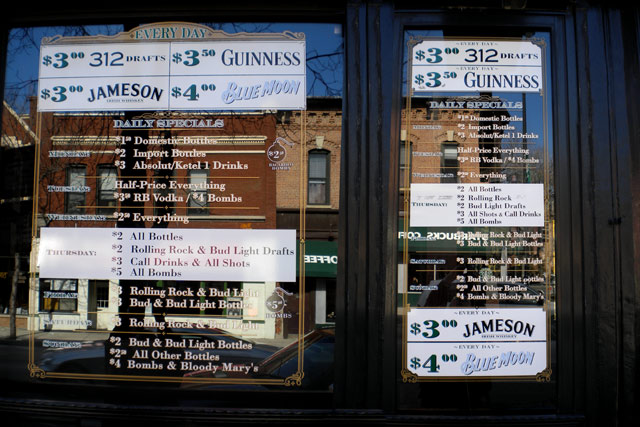 EVERY DAY
$3.00 312 DRAFTS $3.50 GUINNESS
$3.00 JAMESON $4.00 BLUE MOON
IRISH WHISKEY
DAILY SPECIALS
$1 Domestic Bottles
MONDAY: $2 Import Bottles
$3 Absolut/Ketel 1 Drinks
Half-Price Everything
TUESDAY: $3 RB Vodka / $4 Bombs
WEDNESDAY: $2 Everything
$2 All Bottles
$2 Rolling Rock & Bud Light Drafts
THURSDAY: $3 Call Drinks & All Shots
$5 All Bombs
FRIDAY: $3 Rolling Rock & Bud Light
$3 Bud & Bud Light Bottles
BOMBS
SATURDAY: $3 Rolling Rock & Bud Light
$2 Bud & Bud Light Bottles
SUNDAY: $2 All Other Bottles
$4 Bombs & Bloody Mary's
~EVERY DAY~
$3.00 312 DRAFTS
~EVERY DAY~
$3.50 GUINNESS
DAILY SPECIALS
$1 Domestic Bottles
$2 Import Bottles
$3 Absolut/Ketel 1 Drinks
Half-Price Everything
$3 RB Vodka / $4 Bombs
$2 Everything
$2 All Bottles
$2 Rolling Rock
THURSDAY: $2 Bud Light Drafts
$3 All Shots & Call Drinks
$5 All Bombs
$3 Rolling Rock & Bud Light
$3 Bud & Bud Light Bottles
$3 Rolling Rock & Bud Light
$2 Bud & Bud Light Bottles
All Other Bottles
$4 Bombs & Bloody Mary's
~EVERY DAY~
$3.00 JAMESON
IRISH WHISKEY
~EVERY DAY~
$4.00 BLUE MOON